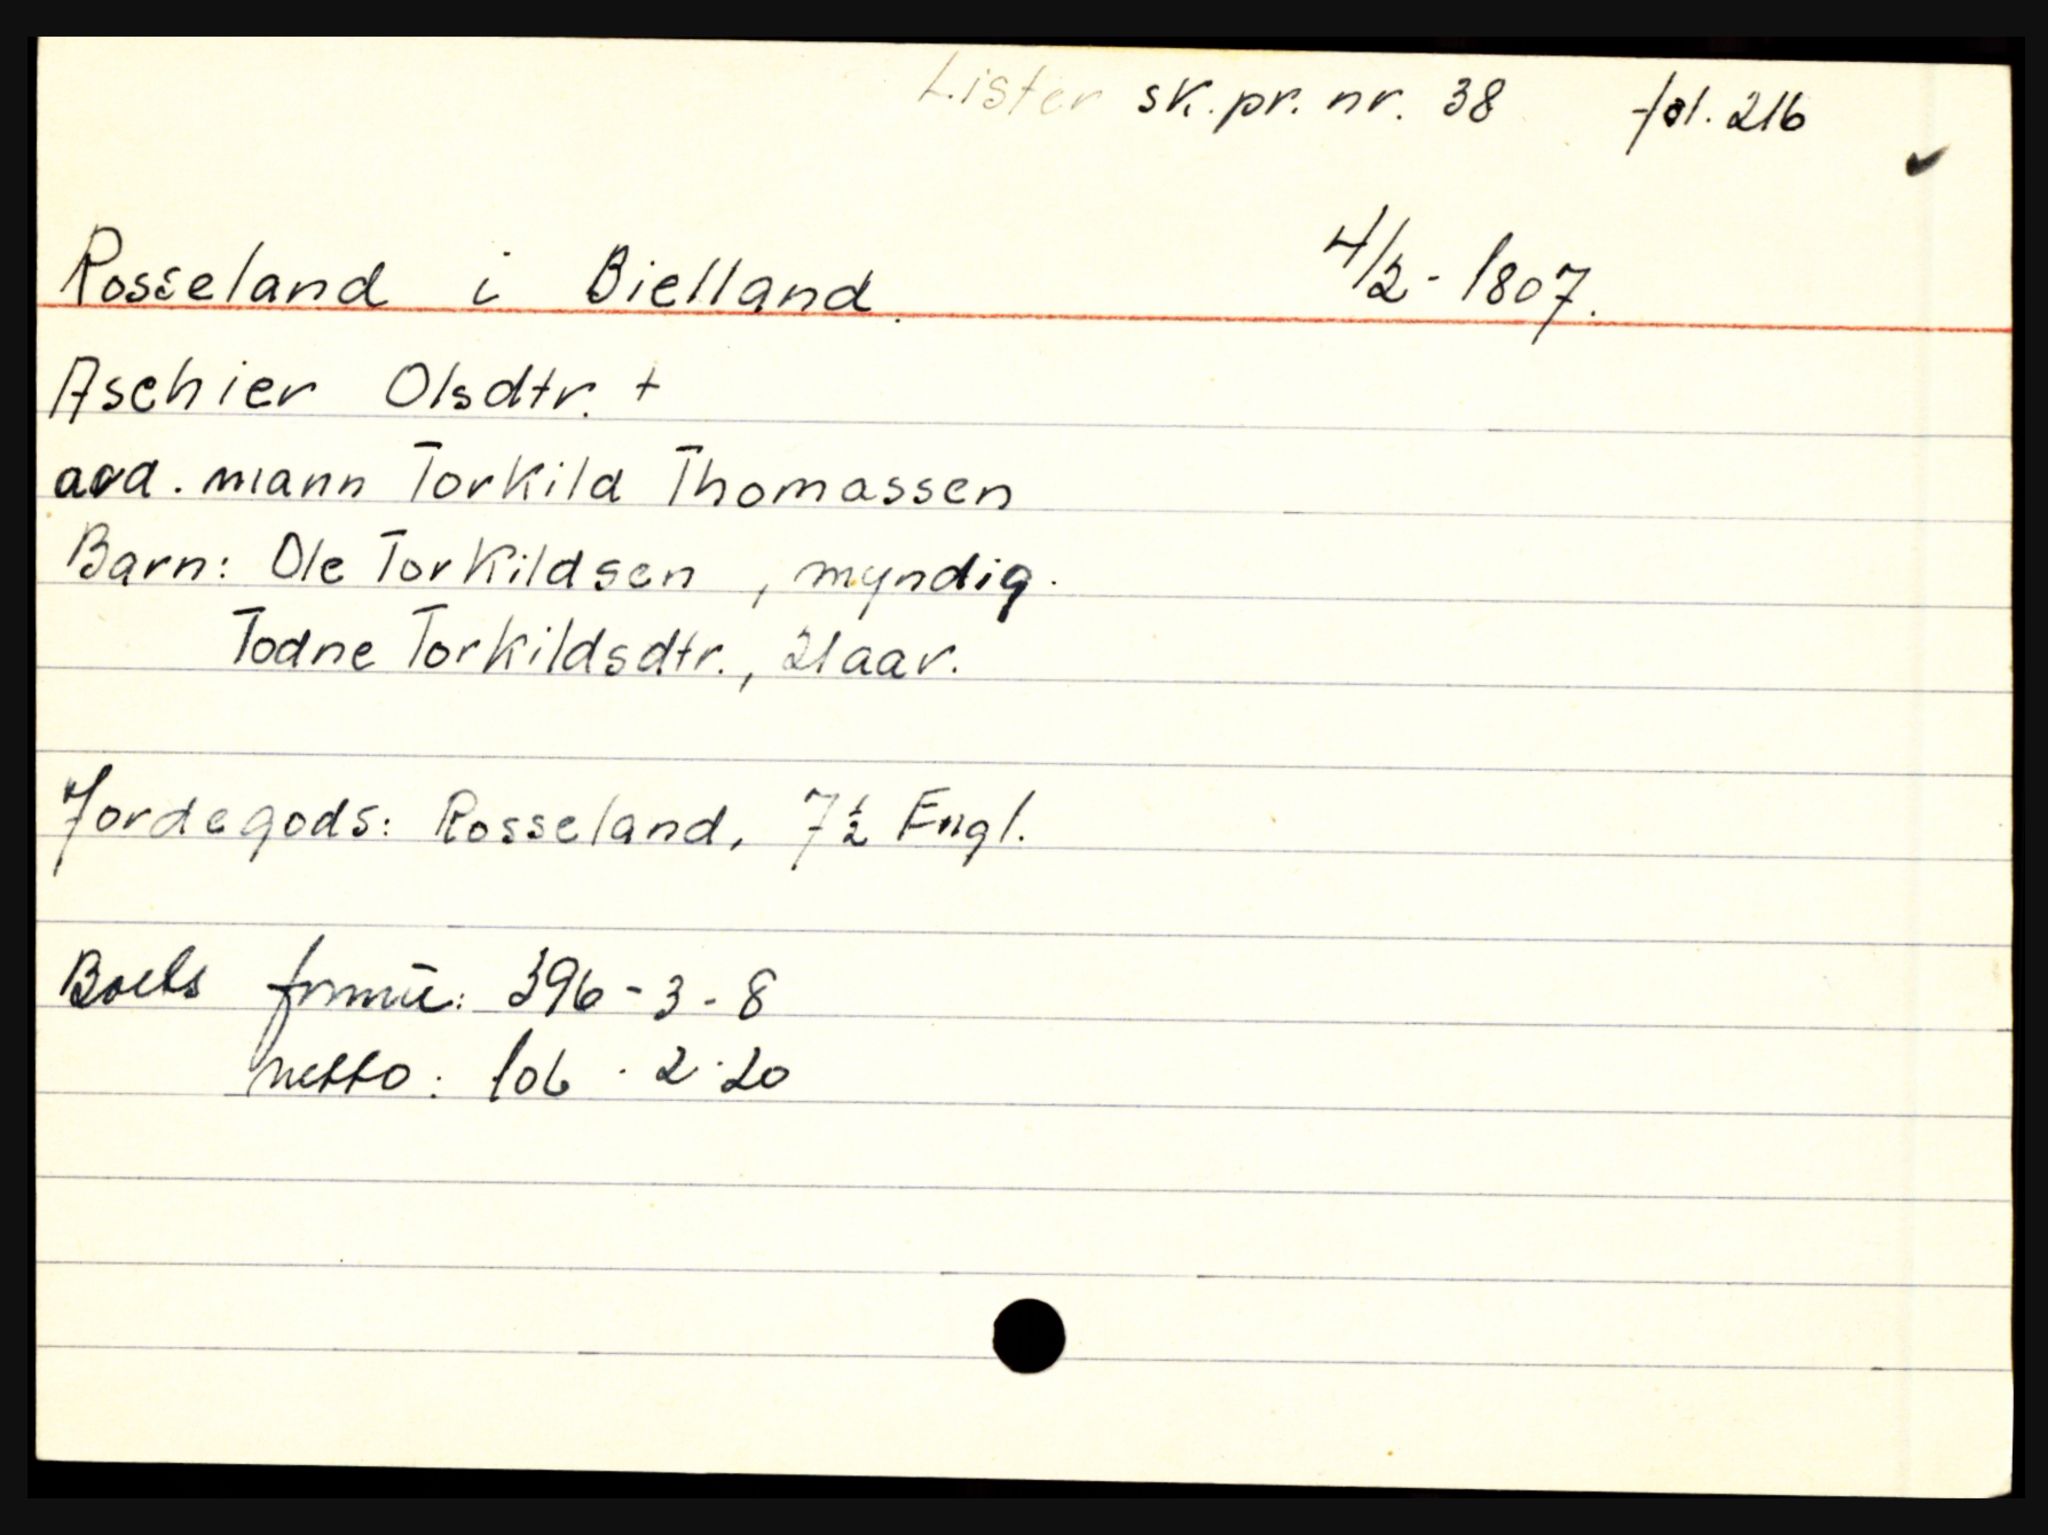 Lister sk.pr. nr. 38 fol. 216
Rosseland i Bielland. 4/2 - 1807.
Aschier Olsdtr. +
avd. mann Torkild Thomassen
Barn: Ole Torkildsen, myndig.
Todne Torkildsdtr., 21 aar.
Jordegods: Rosseland, 7½ Engl.
Boets formue: 396 - 3 - 8
netto: 106 - 2 - 20